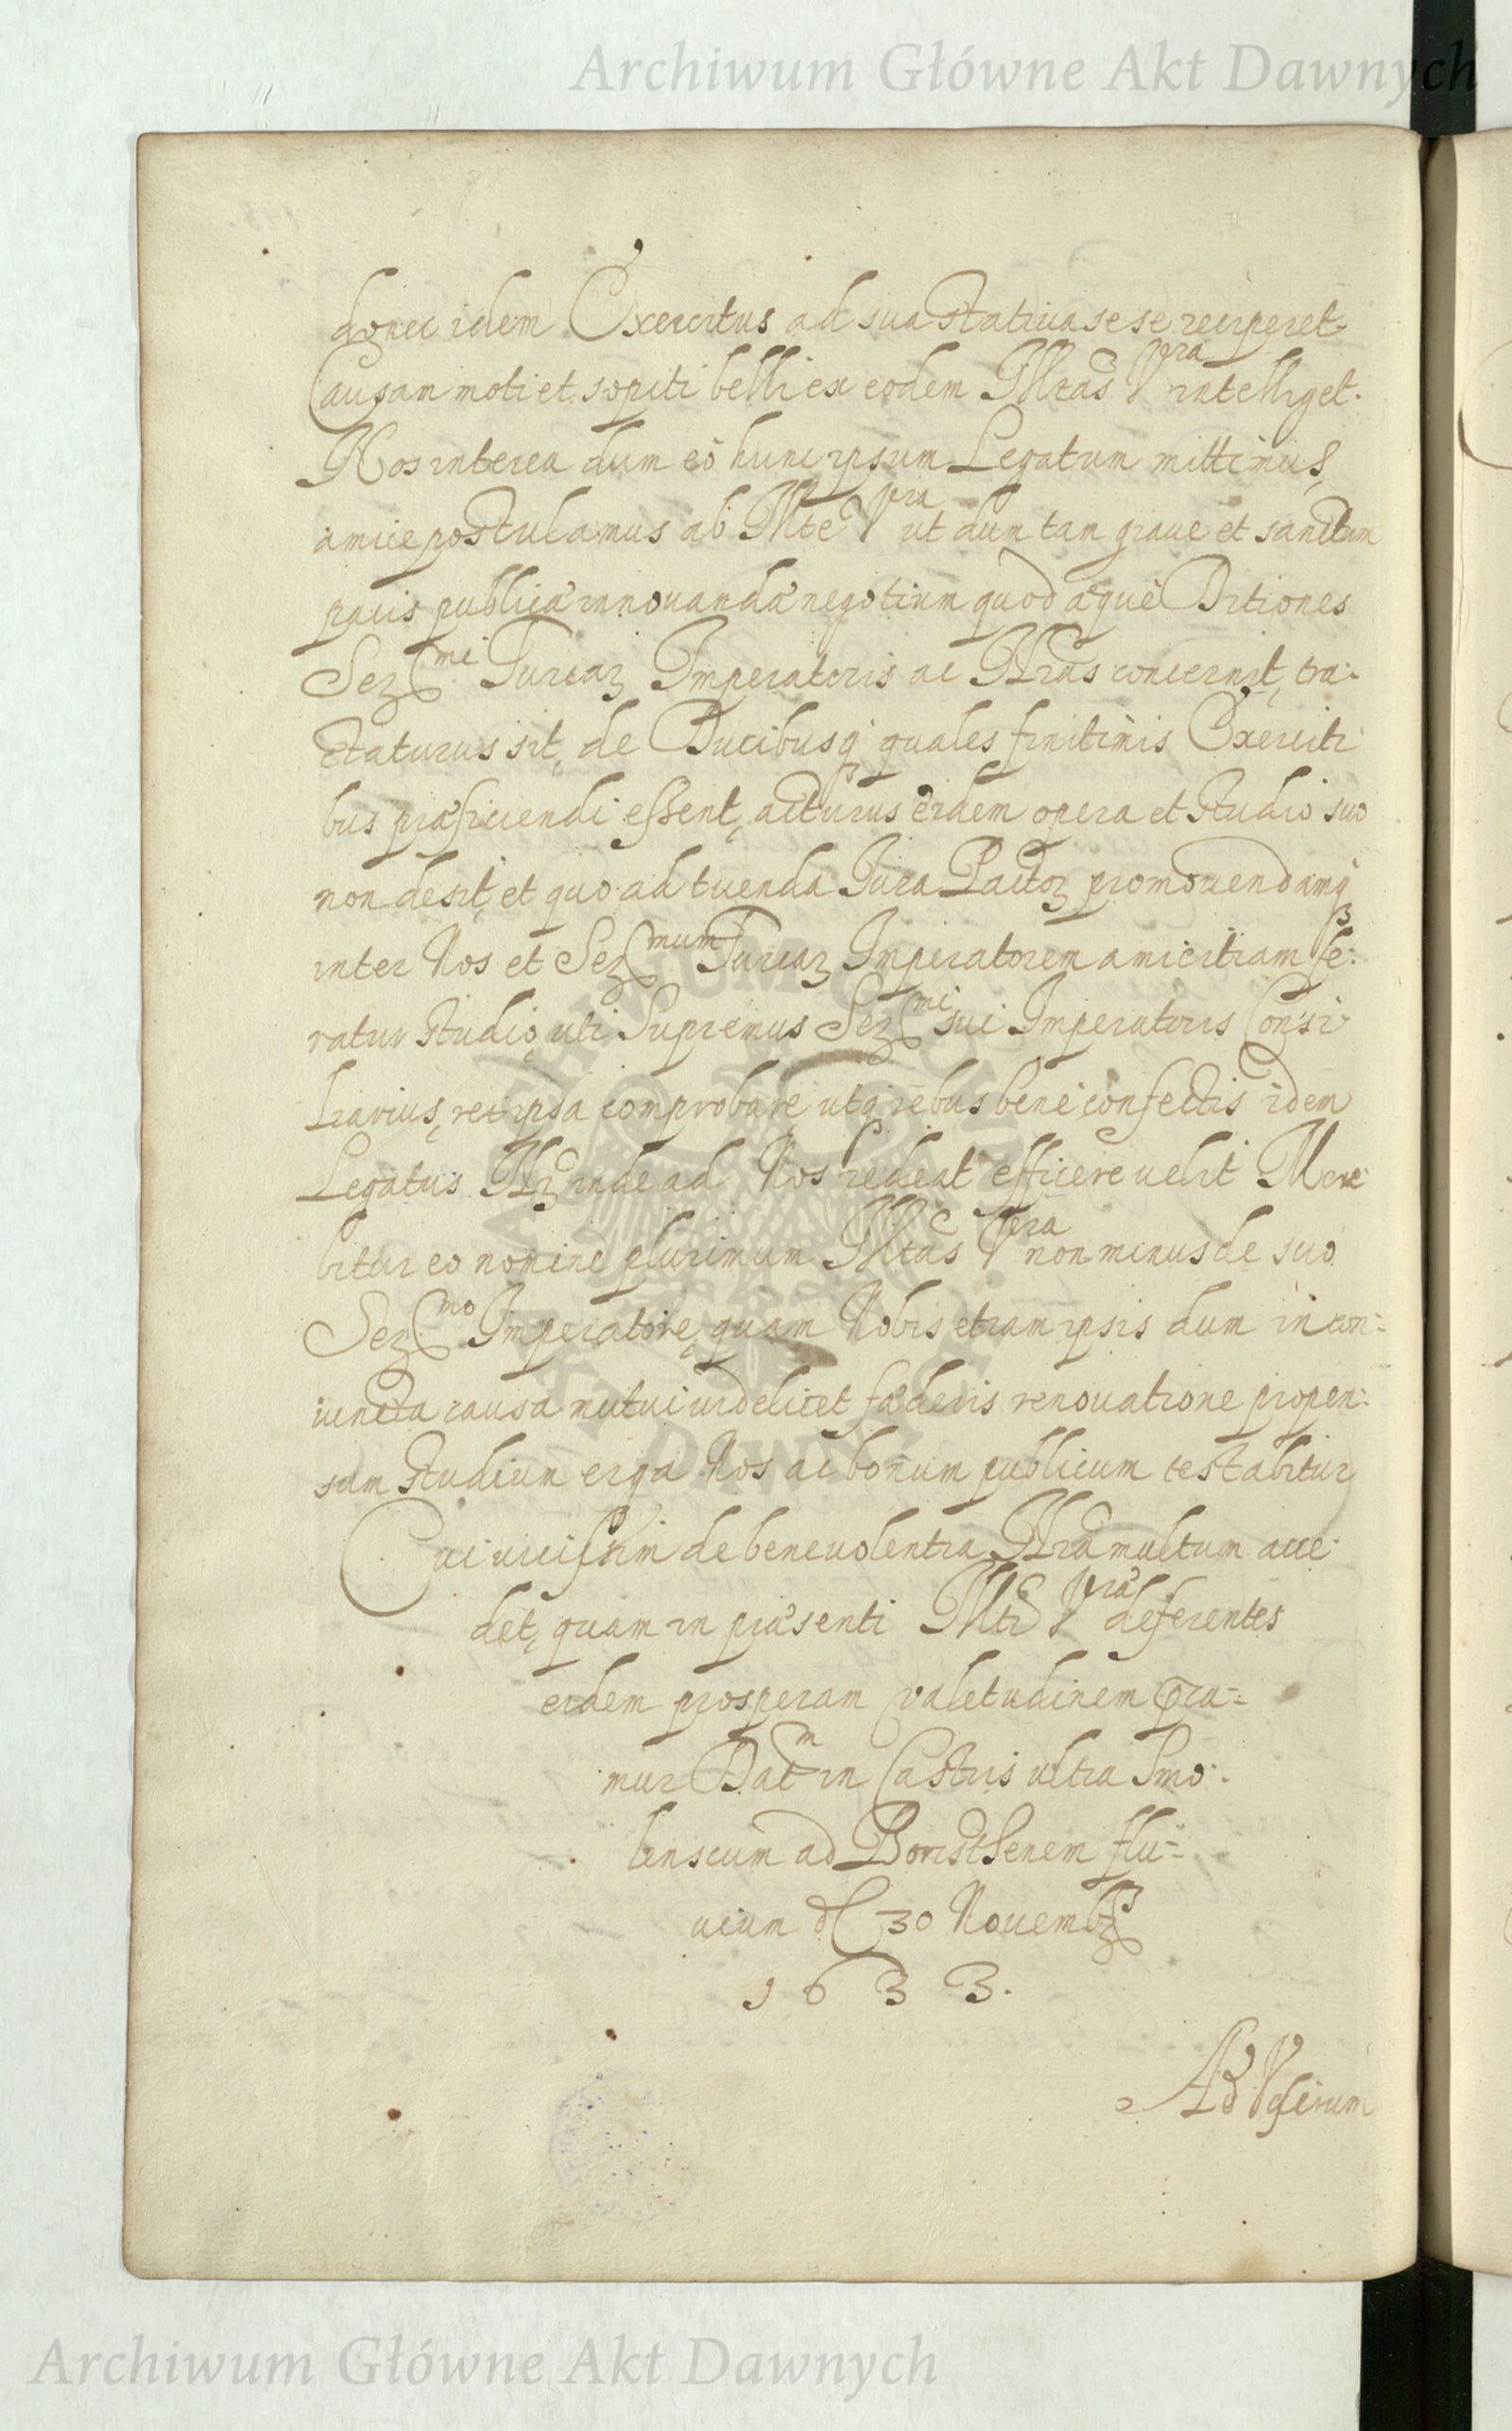 Archiwum Główne Akt Dawnych
donec idem Exercitus ad sua stativa sese reciperet
Causam moti et sopiti belli ex eodem Mtas Vra intelliget.
Nos interea dum eò hunc ipsum Legatum mittimus,
amice postulamus ab Mte Vra ut dum tam graue et sanctum
pacis publicæ innouandæ negotium quod æquè Ditiones
Sermi Turcar Imperatoris ac Nras concernit, tra-
ctaturus sit, de Ducibusq quales finitimis Exerciti
bus præficiendi essent, acturus eidem opera et studio suo
non desit, et quo ad tuenda Jura Pactor promouendamq
inter Nos et Sermum Turcar Imperatorem amicitiam fe-
ratur studio, uti Supremus Sermi sui Imperatoris Consi-
liarius, reipsa comprobare, utq rebus benè confectis idem
Legatus Nr inde ad Nos redeat efficere uelit Mere-
bitur eo nomine plurimum Mtas Vra non minus de suo
Sermo Imperatore, quam Nobis etiam ipsis dum in con-
iuncta causa mutui uidelicet fæderis renouatione propen-
sum studium erga Nos ac bonum publicum testabitur
Cui uicissim de beneuolentia Nra multum acce-
det, quam in præsenti Mti Vræ deferentes
eidem prosperam valetudinem præca-
mur Datm in Castris ultra Smo-
lenscum ad Boristhenem flu-
uium d 30 Nouembr
1633.
Ad Vesirum
Archiwum Główne Akt Dawnych